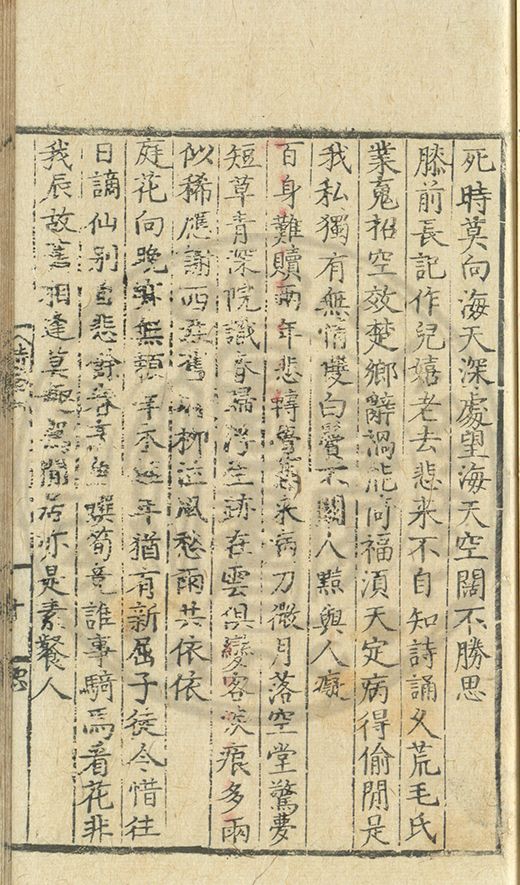 死時莫向海天深處望海天空闊不勝思
膝前長記作兒嬉老去悲来不自知詩誦久荒毛氏
業䰟招空效楚鄉辭禍能向福湏天定病得偷閒是
我私獨有無情雙白鬢不關人黠與人癡
百身難贖兩年悲轉覺新来病刀微月落空堂驚夢
短草青深院識春歸浮生跡在雲俱變客淚痕多雨
似稀應謝西舊柳泣風愁雨共依依
庭花向晚無頼年年猶有新屈子徒今惜往
日謫仙別自悲餘春筍竟誰事騎馬看花非
我辰故舊相逢莫亦是素餐人
十